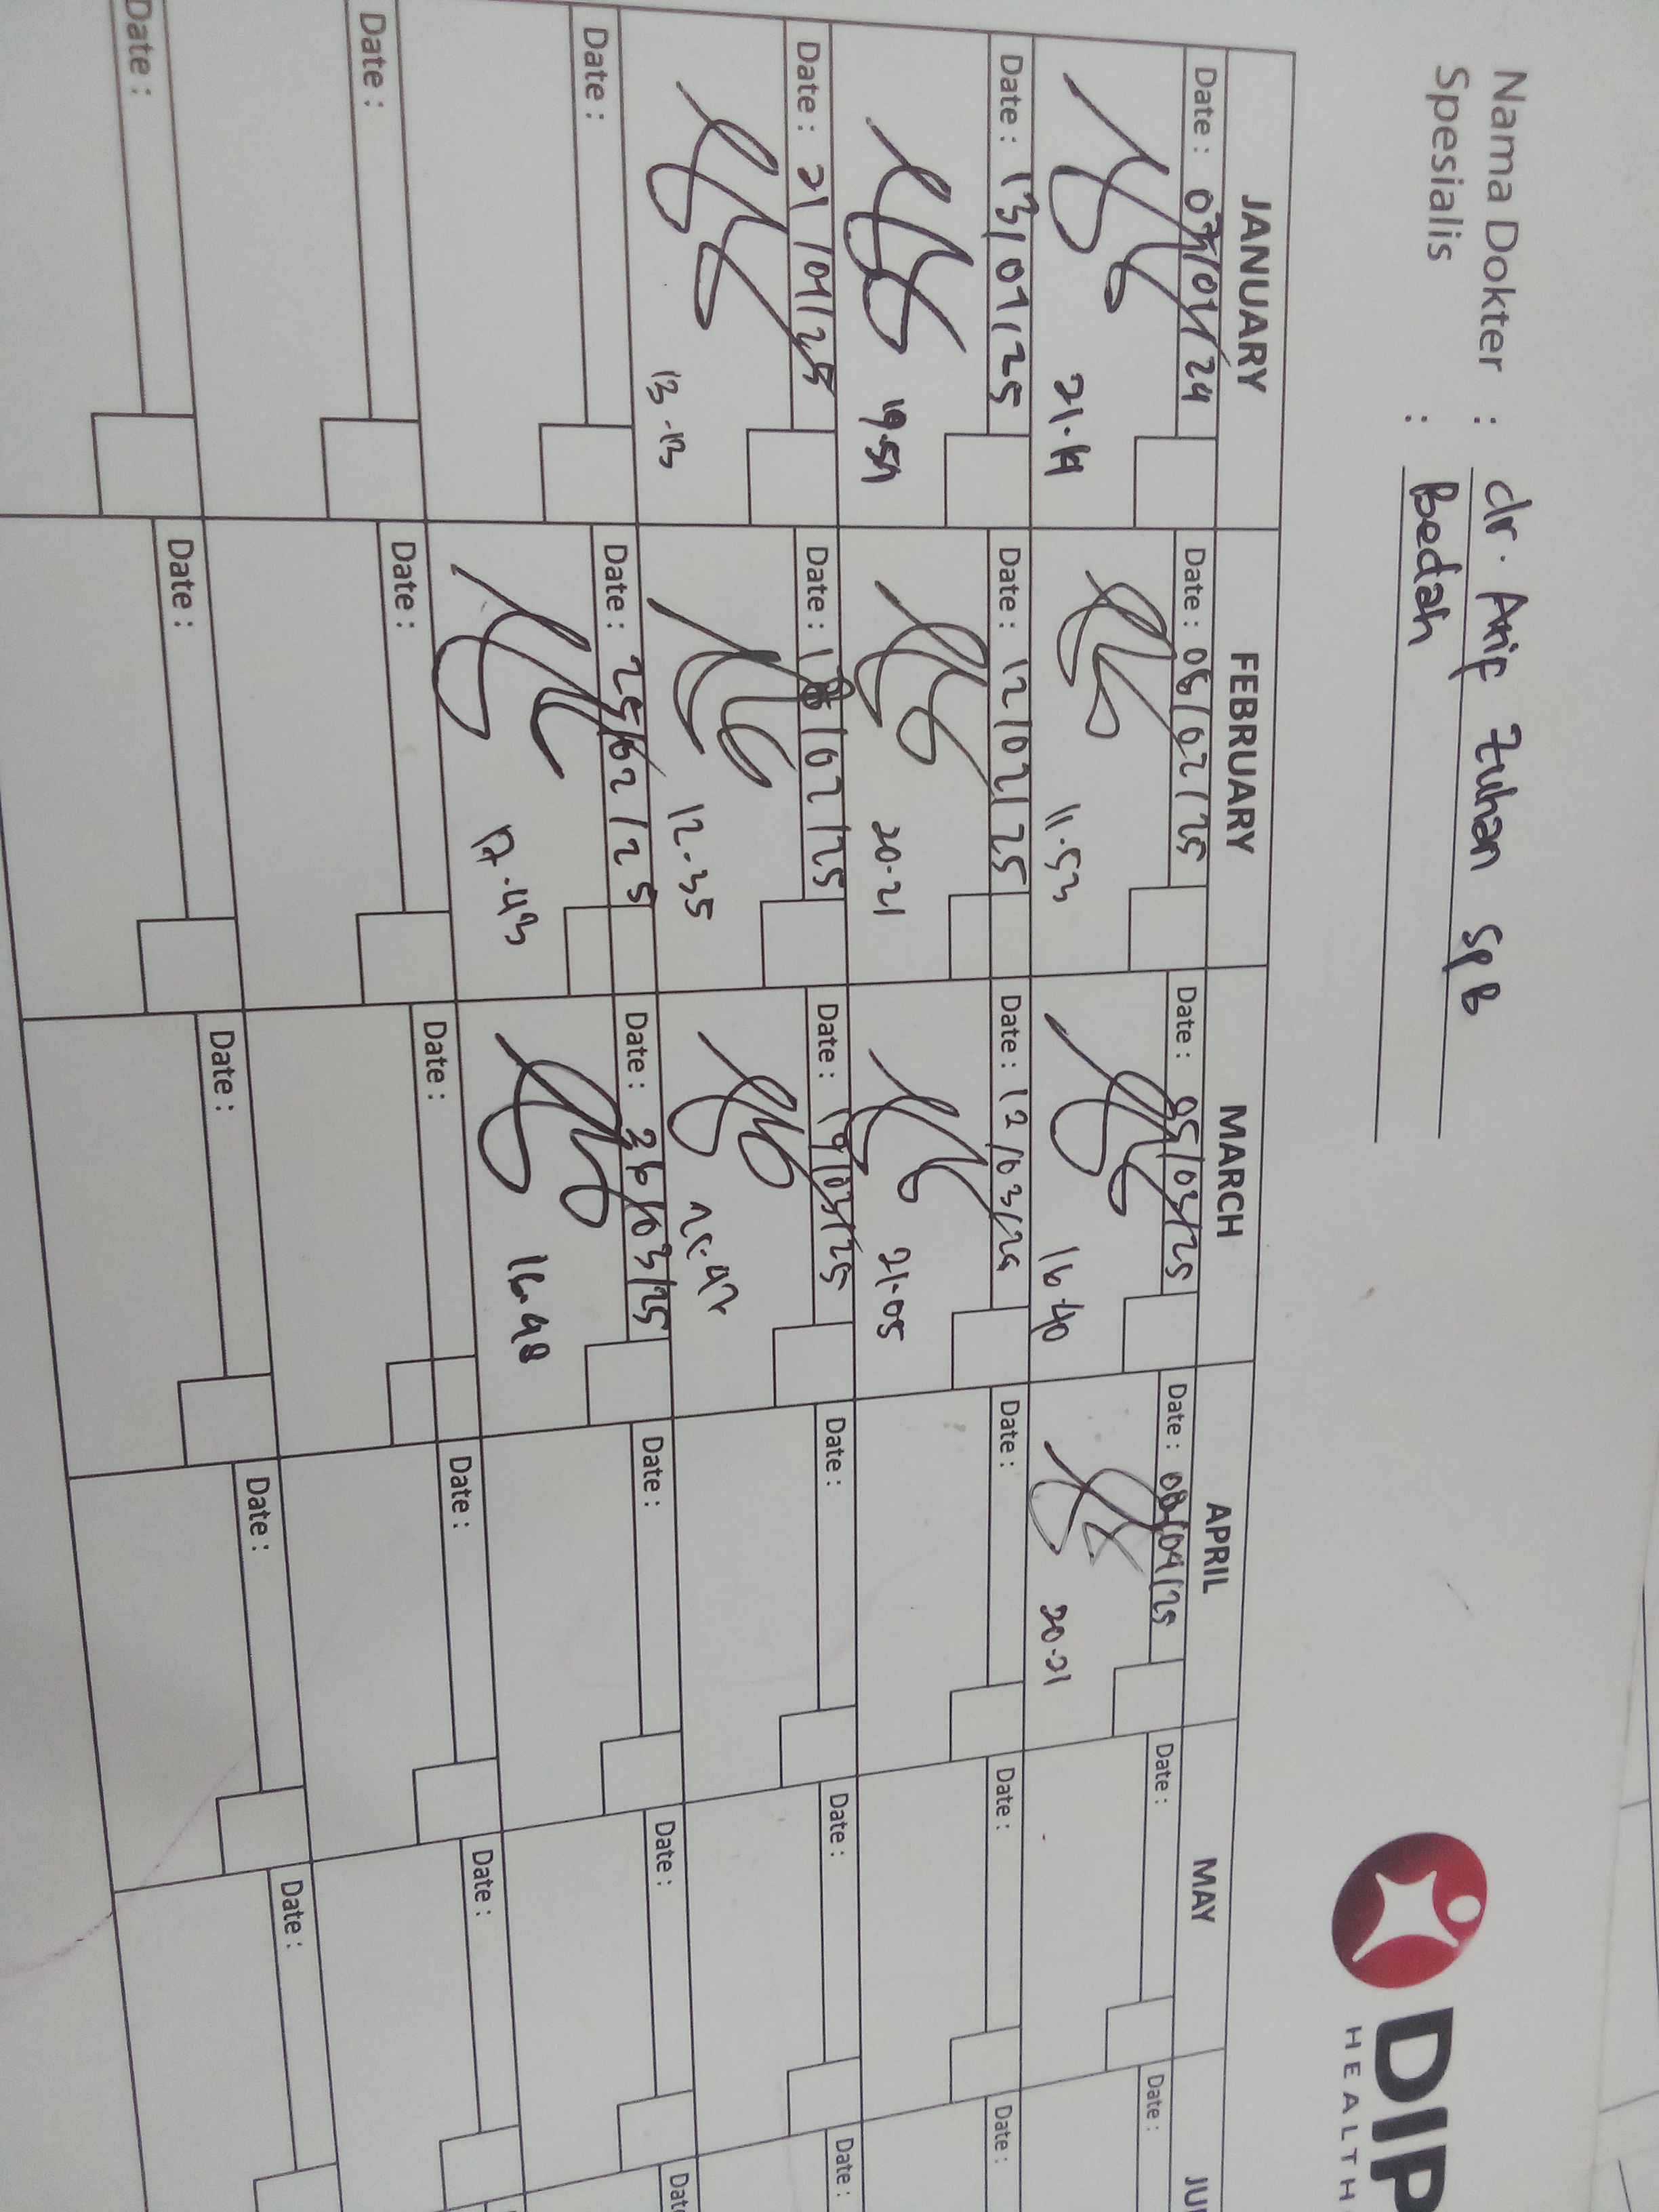 Nama Dokter : dr. Arif Zuhan SpB
Spesialis : Bedah
DIP
HEALTH
JANUARY FEBRUARY MARCH APRIL MAY JU
Date : /01/24 Date : 08/02/25 Date : 05/03/25 Date : 08/04/25 Date : Date :
21.19 11.53 16.40 20.21
Date : 13/01/25 Date : 12/02/25 Date : 12/03/25 Date : Date : Date :
19.59 20.21 21.05
Date : 21/01/25 Date : 18/02/25 Date : 19/03/25 Date : Date : Date :
13.13 12.35
Date : Date : 25/02/25 Date : 26/03/25 Date : Date : Date
17.43 16.48
Date : Date : Date : Date : Date :
Date : Date : Date : Date : Date :